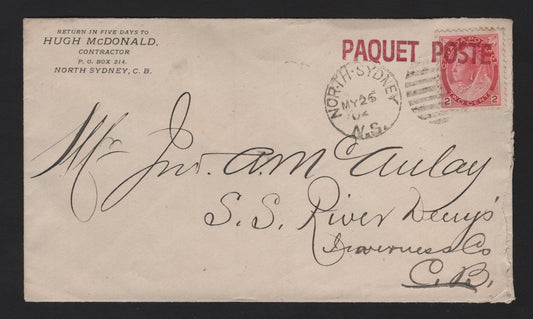 RETURN IN FIVE DAYS TO
HUGH McDONALD,
CONTRACTOR
P. O. BOX 214.
NORTH SYDNEY, C. B.
PAQUET POSTE
NORTH-SYDNEY
MY 26
02
N.S.
2 CENTS 2
Mr Jno. A. McAulay
S. S. River Denys
Inverness Co
C.B.